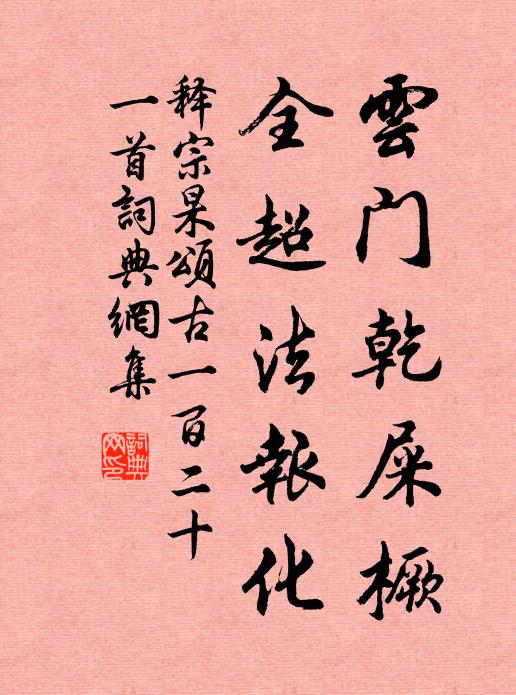 雲门乾屎橛
全超法報化
释宗杲頌古一百二十
一首詞典網集
詞典网印